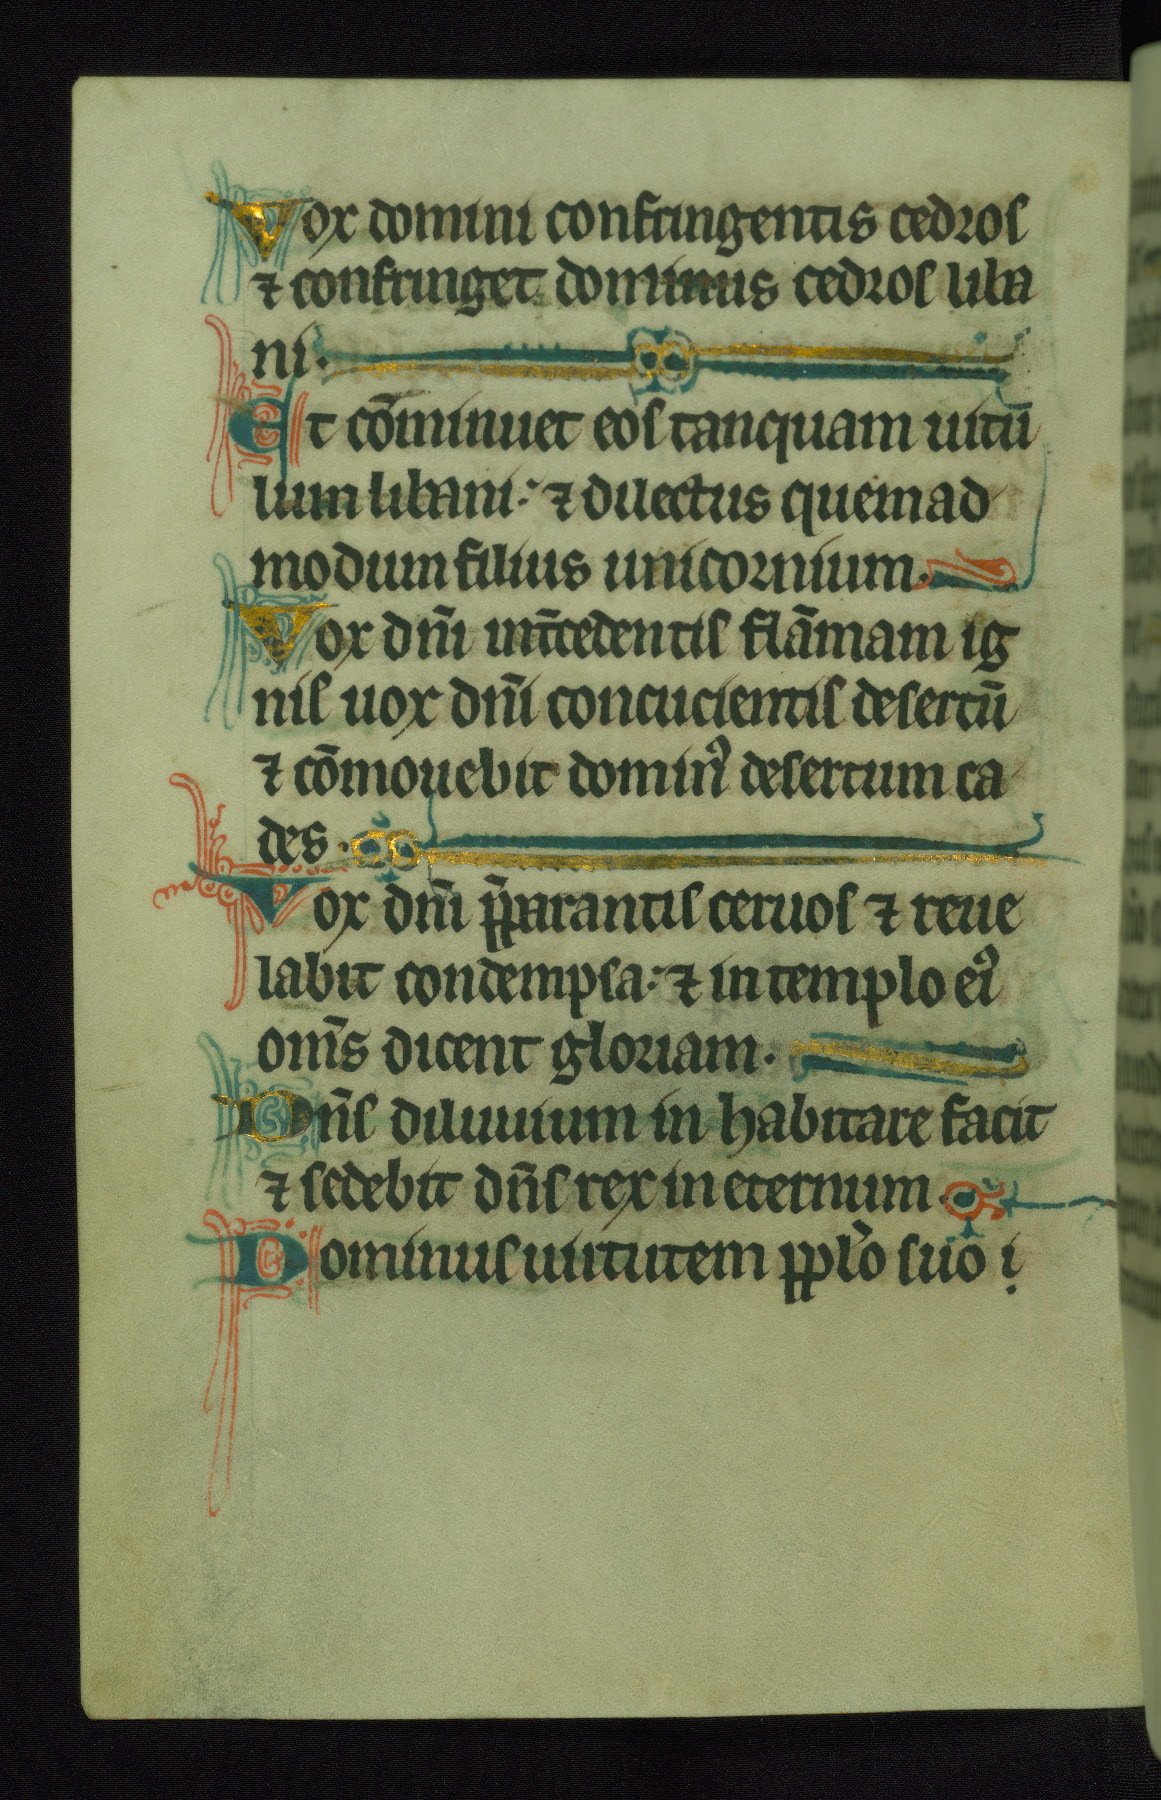 Vox domini confringentis cedros
⁊ confringet dominus cedros liba
ni.
Et cōminuet eos tanquam uitū
lum libani: ⁊ dilectus quemad
modum filius unicornium.
Vox dn̄i int̄cedentis flāmam ig
nis uox dn̄i concucientis desertū
⁊ cōmouebit dominꝰ desertum ca
des.
Vox dn̄i p̄parantis ceruos ⁊ reue
labit condempsa: ⁊ in templo eiꝰ
om̄s dicent gloriam.
Dn̄s diluuium in habitare facit
⁊ sedebit dn̄s rex in eternum.
Dominus uirtutem pplo suo i